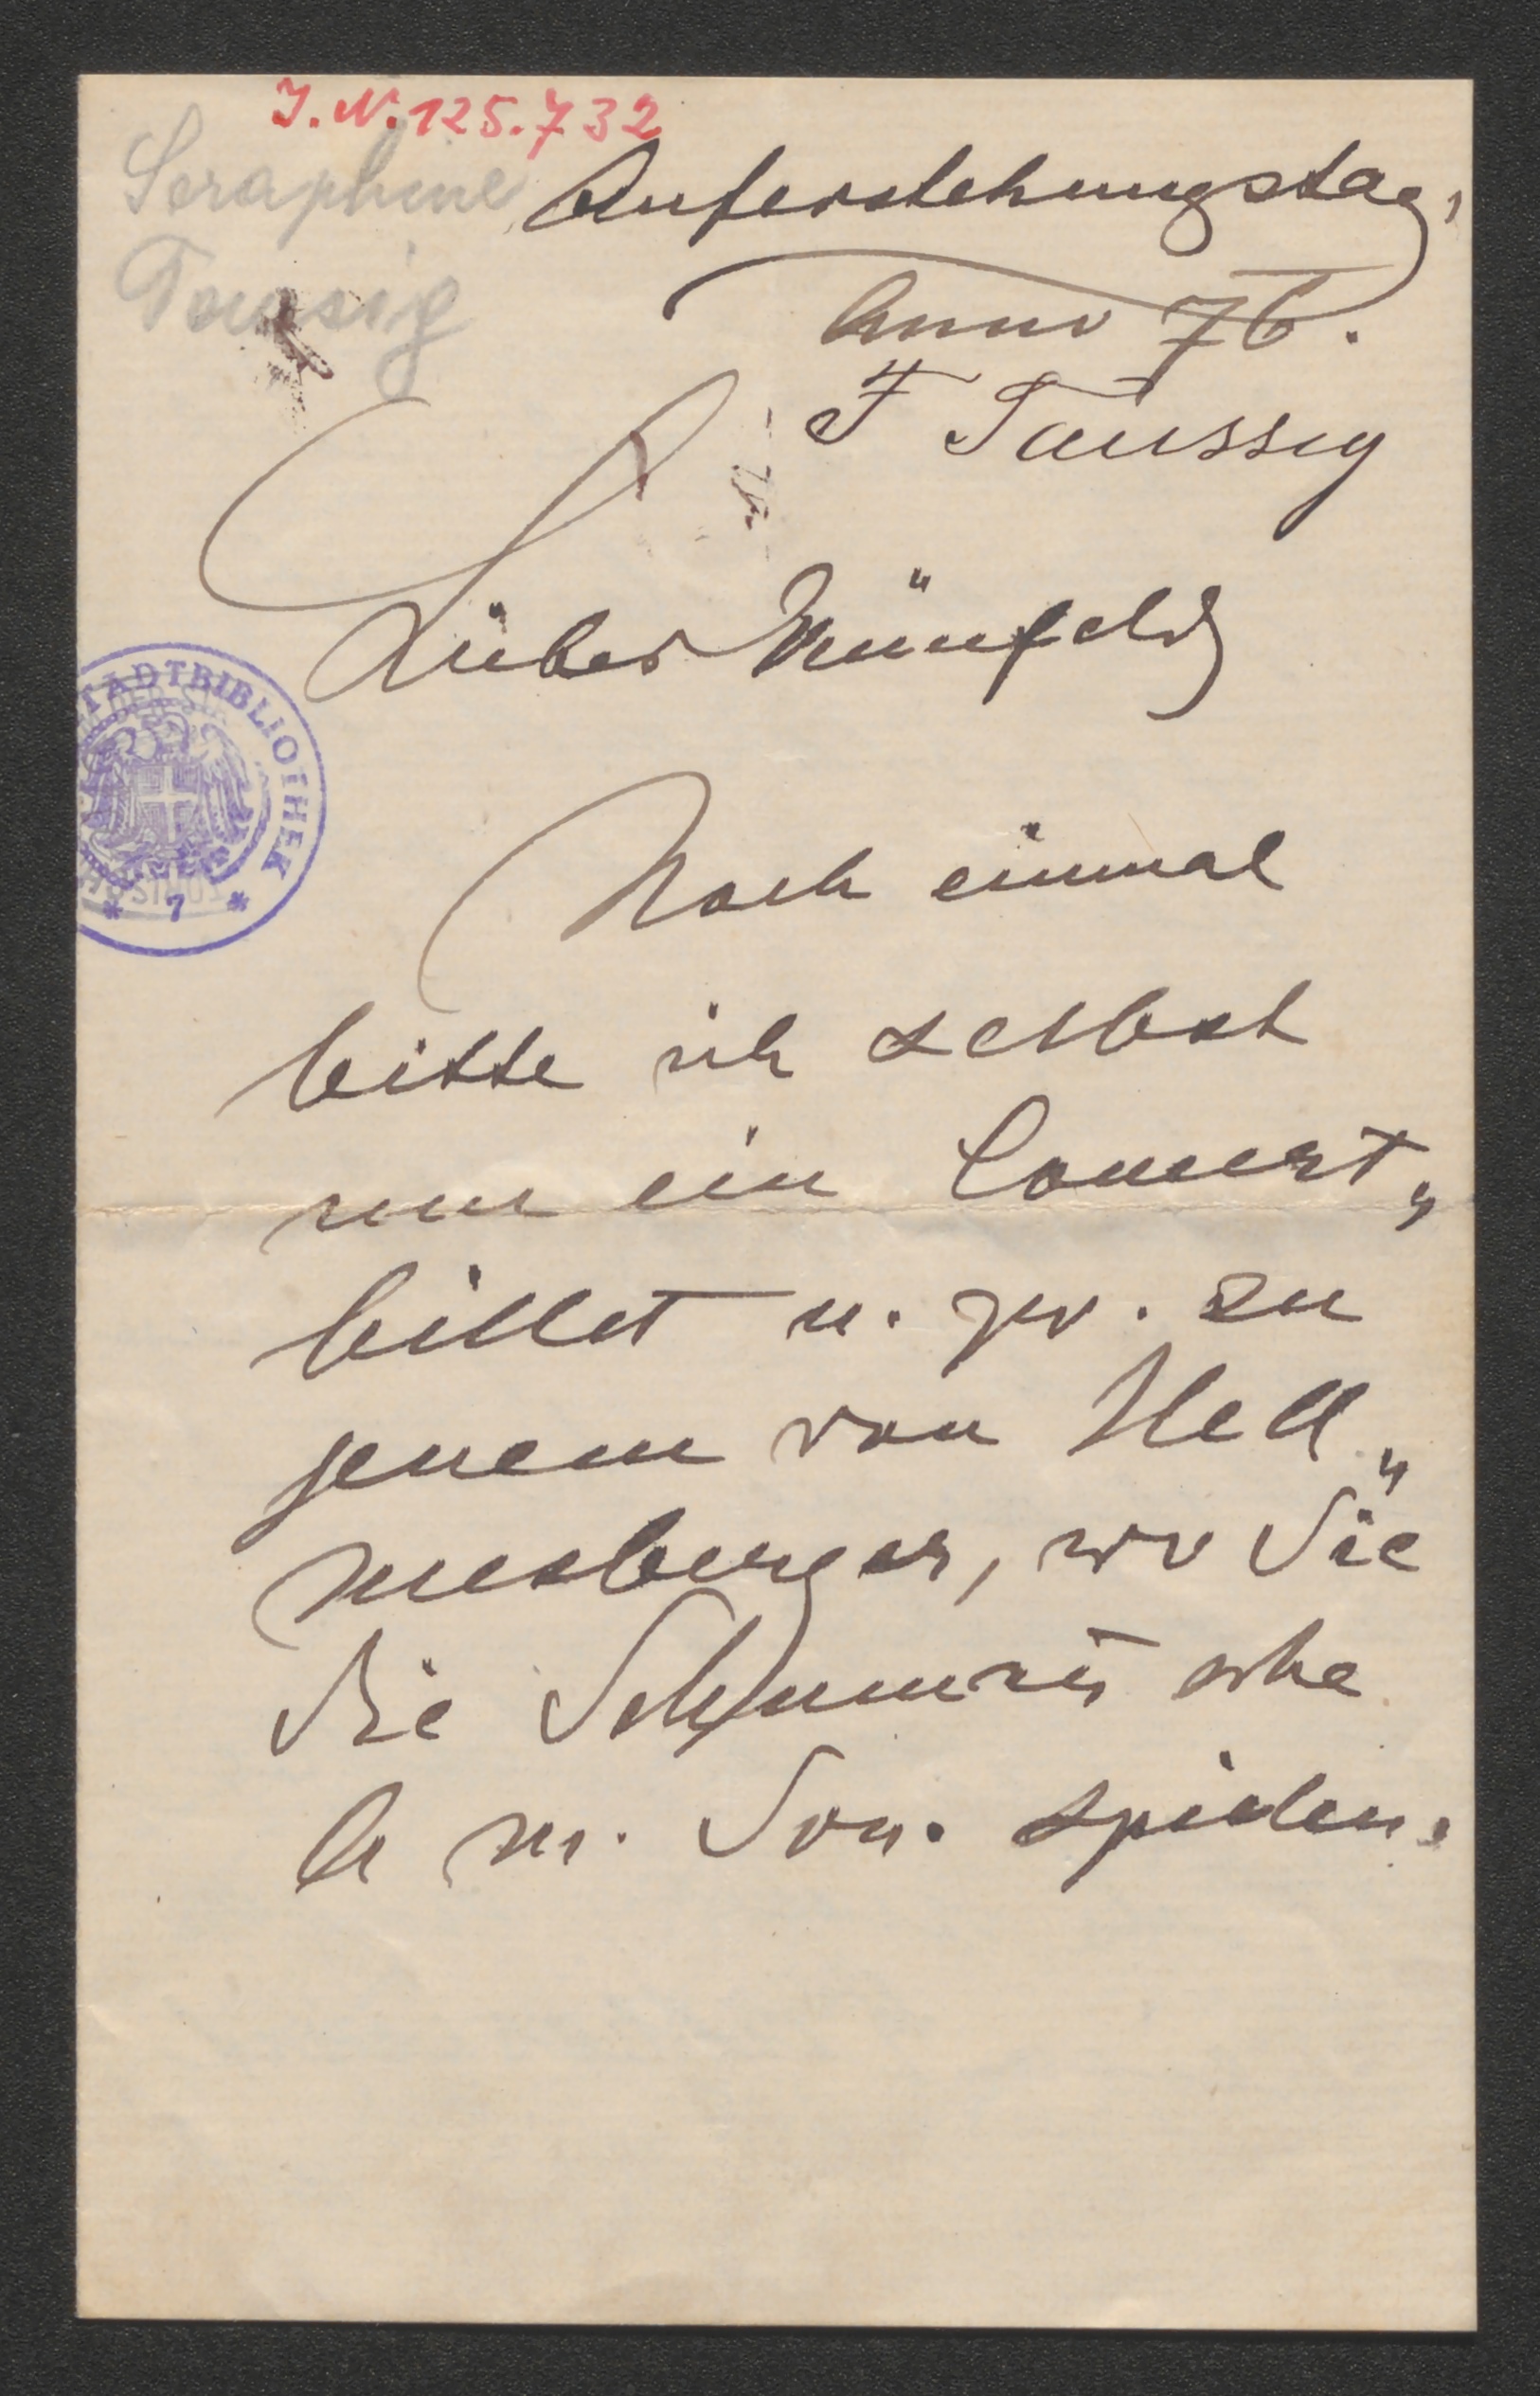 J. N. 125.732
Seraphine
Tausig
Auferstehungstag,
Anno 76.
F Taussig
Lieber Grünfeld
Noch einmal
bitte ich selbst
um ein Concert„
billet u. zw. zu
jenem von Hell„
mesberger, wo Sie
die Schumann'sche
A m. Son. spielen.
STADTBIBLIOTHEK
* 7 *